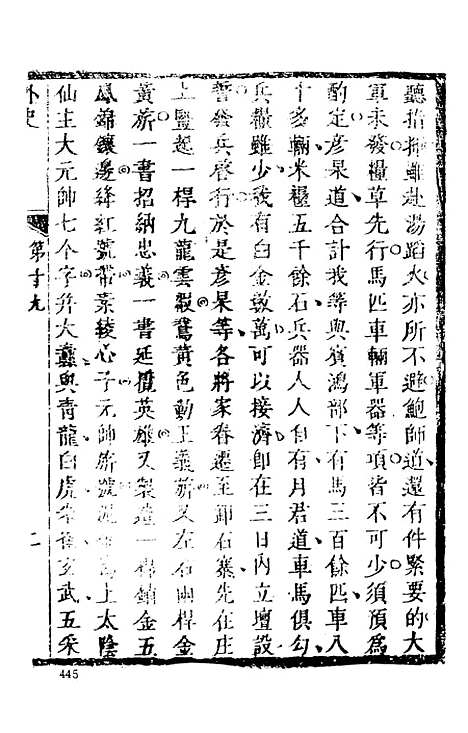 聽指揮雖赴湯蹈火亦所不避鮑師道還有件緊要的大
軍未發糧草先行馬匹車輛軍器等項皆不可少須預爲
酌定彦杲道合計我等與賓鴻部下有馬三百餘匹車八
十多輛米糧五千餘石兵器人人自有月君道車馬俱勾
兵糧雖少我有白金數萬可以接濟即在三日內立壇設
誓發兵啓行於是彦杲等各將家眷遷至卸石寨先在庄
上豎起一桿九龍雲緞鵞黃色勤王義旂又左右兩桿金
黃旂一書招納忠義一書延攬英雄又製造一桿銷金五
鳳錦鑲邊絳紅號帶素綾心子元帥旂號說 爲上太陰
仙主大元帥七个字并大纛與青龍白虎朱雀玄武五采
外史
第十九
二
445